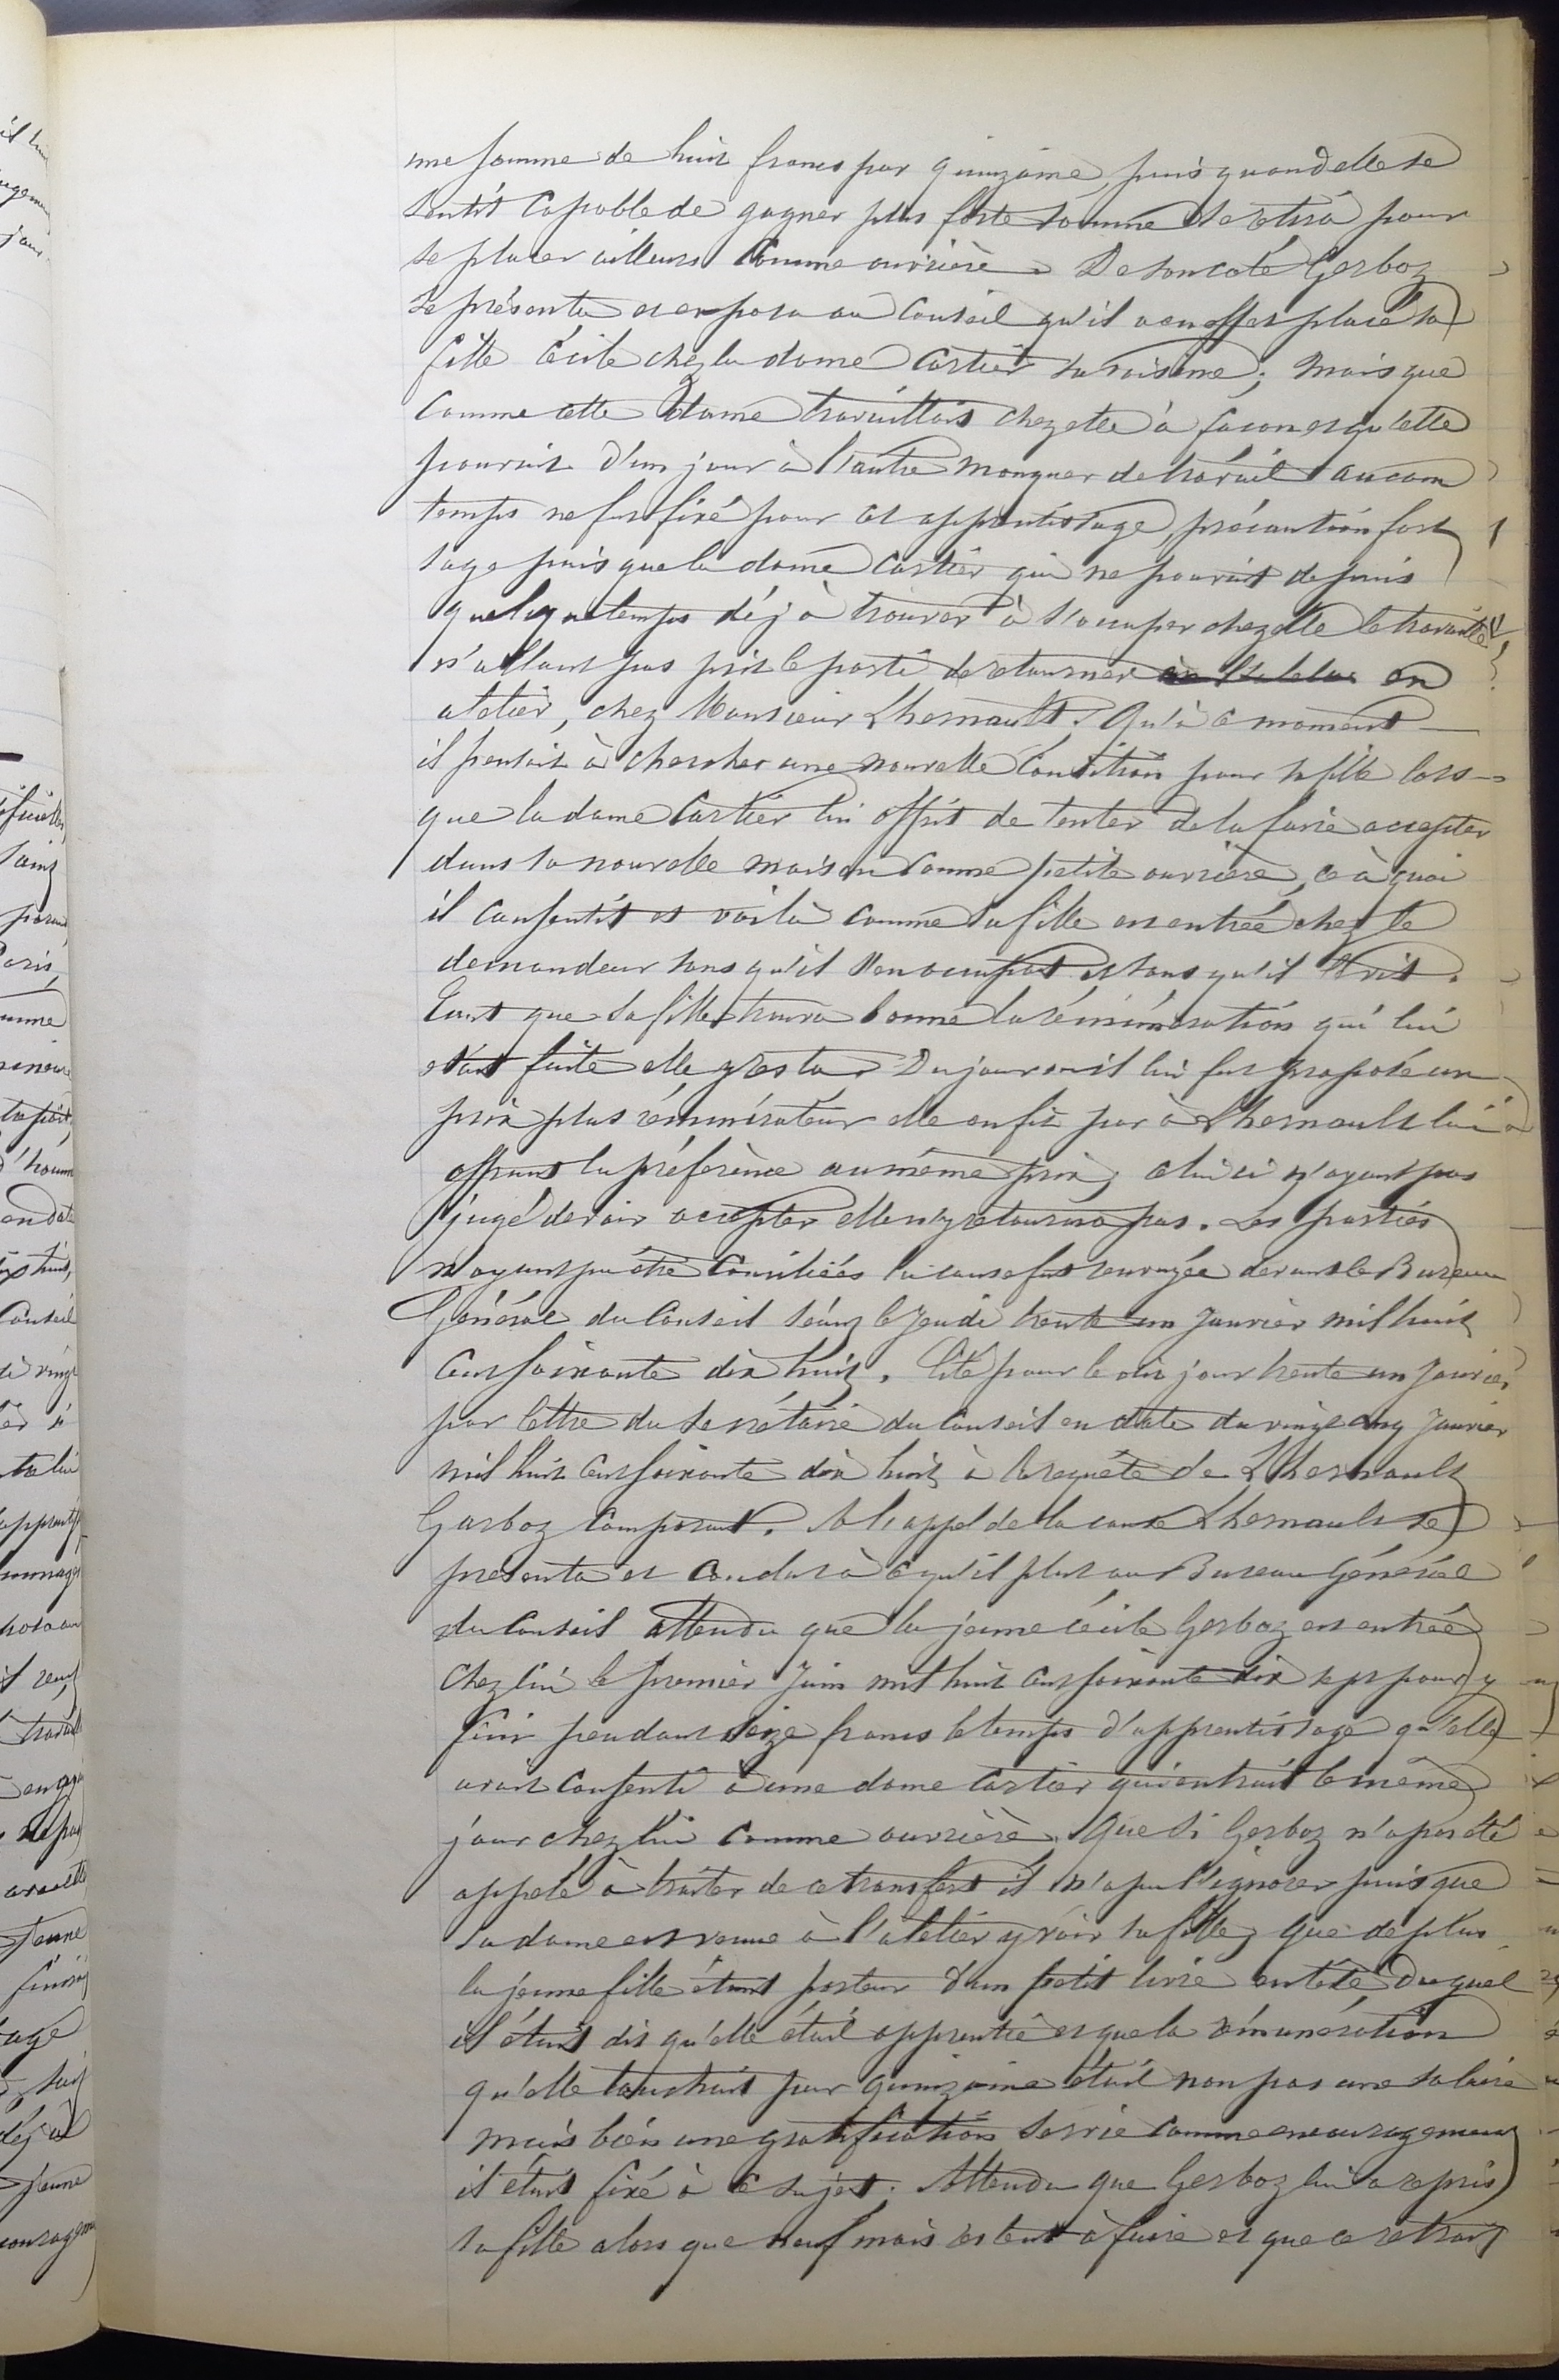 une somme de huit francs par quinzaine, puis quand elle se
sentit capable de gagner plus forte somme se retira pour
se placer ailleurs comme ouvrière. De son coté Gerboz
se présenta et exposa au Conseil qu'il a en effet placé sa
fille Cécile chez la dame Cartier sa voisine; mais que
comme cette dame travaillait chez elle à façon et qu'elle
pouvait d'un jour à l'autre manquer de travail aucun
temps ne fut fixé pour cet apprentissage, précaution fort
sage puisque la dame Cartier qui ne pouvait depuis
quelque temps déjà trouver à s'occuper chez elle le travaille
n'allant pas prit le parti de retourner en
atelier, chez Monsieur Lhernault. Qu'à ce moment
il pensait à chercher une nouvelle condition pour sa fille lors-
que la dame Cartier lui offrit de tenter de la faire accepter
dans sa nouvelle maison comme petite ouvrière, ce à quoi
il consentit et voilà comme sa fille est entrée chez le
demandeur sans qu'il s'en occupat et sans qu'il le vit.
Tant que sa fille trouva bonne la rémunération qui lui
était faite elle y resta. Du jour où il lui fut proposé un
prix plus rémunérateur elle en fit par à Lhernault lui
offrant la préférence au même prix; celui ci n'ayant pas
jugé devoir accepter elle n'y retourna pas. Les parties
n'ayant pu être conciliées la cause fut renvoyée devant le Bureau
Général du Conseil séant le Jeudi trente un Janvier mil huit
cent soixante dix huit. Cité pour le dit jour trente un Janvier
par lettre du secrétaire du Conseil en date du vingt cinq Janvier
mil huit cent soixante dix huit à la requête de Lhernault
Gerboz comparut. A l'appel de la cause Lhernault se
présenta et conclut à ce qu'il plut au Bureau Général
du Conseil attendu que la jeune Cécile Gerboz est entrée
chez lui le premier Juin mil huit cent soixante dix sept pour y
finir pendant seize francs le temps d'apprentissage qu'elle
avait consenti à une dame Cartier qui entrait le même
jour chez lui comme ouvrière. Que si Gerboz n'a pas été
appelé à traiter de ce transfert il n'a pu l'ignorer puisque
sa dame est venue à l'atelier y voir sa fille; que de plus
la jeune fille étant porteur d'un petit livre en tête duquel
il était dit qu'elle était apprentie et que la rémunération
qu'elle touchait par quinzaine était non pas une salaire
mais bien une gratification servie comme encouragement
il était fixé à ce sujet. Attendu que Gerboz lui a repris
sa fille alors que neuf mois restent à faire et que ce retrait